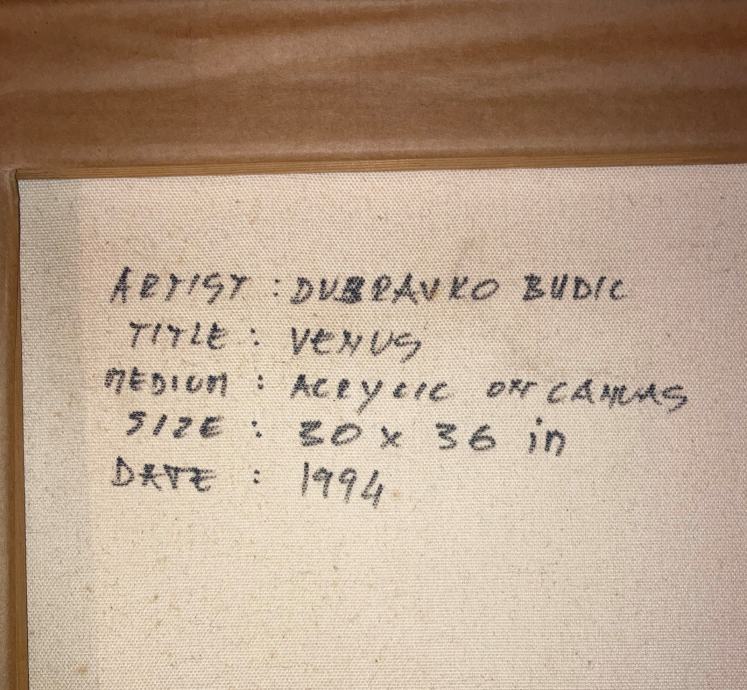 ARTIST : DUBRAVKO BUDIC
TITLE : VENUS
MEDIUM : ACRYLIC ON CANVAS
SIZE : 30 x 36 in
DATE : 1994